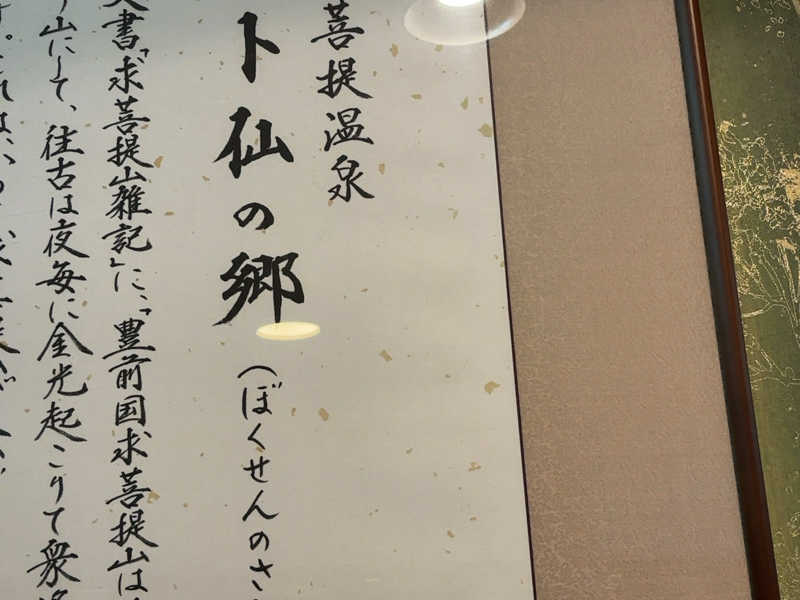 菩提温泉
卜仙の郷
(ぼくせんのさ
書「求菩提山雑記」に、「豊前国求菩提山は
山にして、往古は夜毎に金光起こりて衆